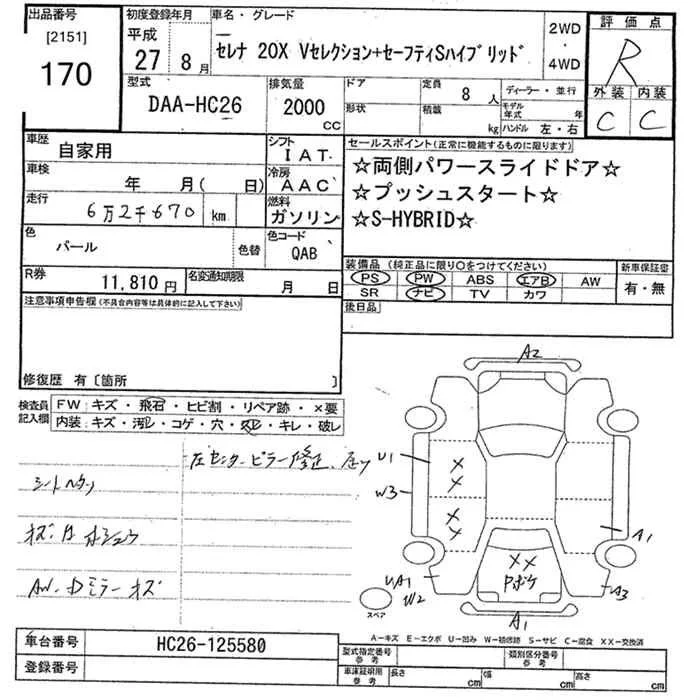 出品番号
[2151]
170
初度登録年月
平成
27 8月
車名・グレード
セレナ 20X Vセレクション+セーフティSハイブリッド
2WD
・
4WD
評価点
R
外装 内装
C C
型式
DAA-HC26
排気量
2000
CC
ドア
形状
定員
8人
積載
kg
ディーラー・並行
モデル年式 年
ハンドル 左・右
車歴
自家用
車検
年 月( 日)
走行
6万2千670 km
色
パール
色替
シフト
IAT
冷房
AAC
燃料
ガソリン
色コード
QAB
R券
11,810円
名変通知期限
月 日
セールスポイント(正常に機能するものに限ります)
☆両側パワースライドドア☆
☆プッシュスタート☆
☆S-HYBRID☆
装備品(純正品に限り○をつけてください)
PS PW ABS エアB AW
SR ナビ TV カワ
新車保証書
有・無
後日品
注意事項申告欄(不具合内容等は具体的に記入して下さい)
修復歴 有〔箇所 〕
検査員記入欄
FW:キズ・飛石・ヒビ割・リペア跡・×要
内装:キズ・汚レ・コゲ・穴・スレ・キレ・破レ
左センターピラー修正、
シートヘタリ
AW・Dミラーキズ
A2
U1
W3
A1
UA1
W2
A3
A1
XX
XX
XX
スペア
A-キズ E-エクボ U-凹み W-補修跡 S-サビ C-腐食 XX-交換済
車台番号
HC26-125580
登録番号
型式指定番号
参考
類別区分番号
参考
車庫証明用
参考
長さ cm 幅 cm 高さ cm